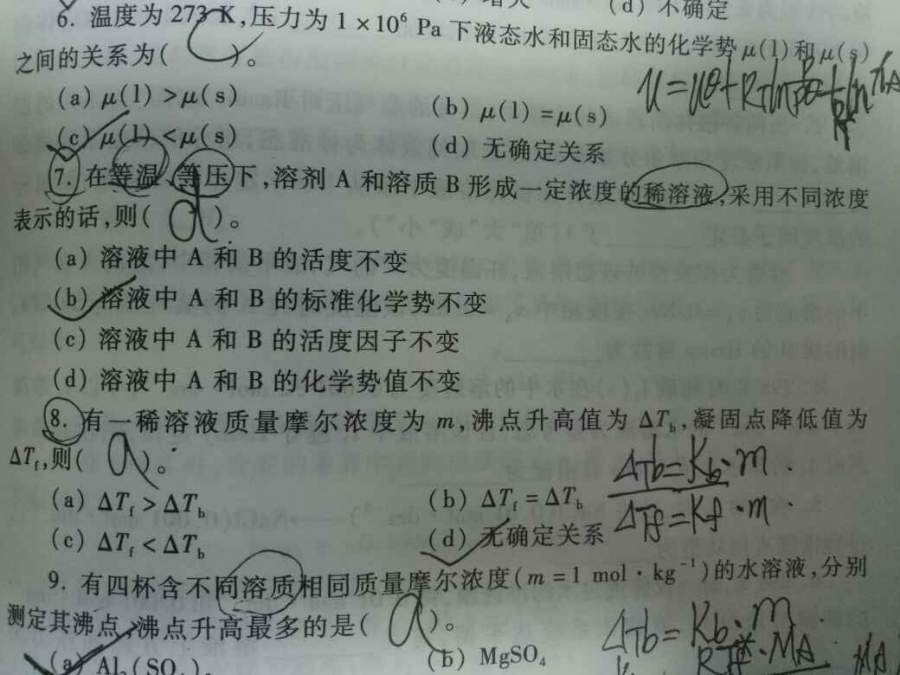 (d) 不确定
6. 温度为 273 K,压力为 1 × 10⁶ Pa 下液态水和固态水的化学势 μ(l) 和 μ(s)
之间的关系为( )。
(a) μ(l) > μ(s)
(b) μ(l) = μ(s)
(c) μ(l) < μ(s)
(d) 无确定关系
7. 在等温、等压下,溶剂 A 和溶质 B 形成一定浓度的稀溶液,采用不同浓度
表示的话,则( d )。
(a) 溶液中 A 和 B 的活度不变
(b) 溶液中 A 和 B 的标准化学势不变
(c) 溶液中 A 和 B 的活度因子不变
(d) 溶液中 A 和 B 的化学势值不变
8. 有一稀溶液质量摩尔浓度为 m,沸点升高值为 ΔT_b,凝固点降低值为
ΔT_f,则( a )。
(a) ΔT_f > ΔT_b
(b) ΔT_f = ΔT_b
(c) ΔT_f < ΔT_b
(d) 无确定关系
ΔTb = Kb · m .
ΔTf = Kf · m
9. 有四杯含不同溶质相同质量摩尔浓度(m = 1 mol · kg⁻¹)的水溶液,分别
测定其沸点,沸点升高最多的是( a )。
(a) Al₂(SO₄)₃
(b) MgSO₄
ΔTb = Kb · m